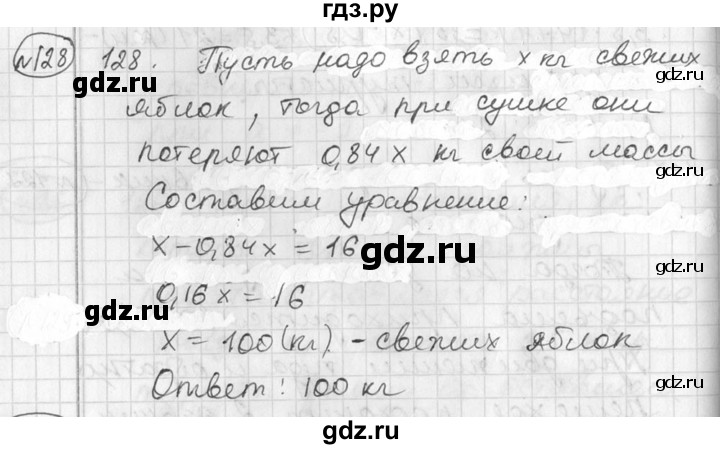 гдз.ру
№128 128. Пусть надо взять x кг свежих
яблок, тогда при сушке они
потеряют 0,84x кг своей массы
Составим уравнение:
x-0,84x = 16
0,16x = 16
x = 100(кг) - свежих яблок
Ответ: 100 кг
gdz.ru
gdz.ru
gdz.ru
gdz.ru
gdz.ru
gdz.ru
gdz.ru
gdz.ru
gdz.ru